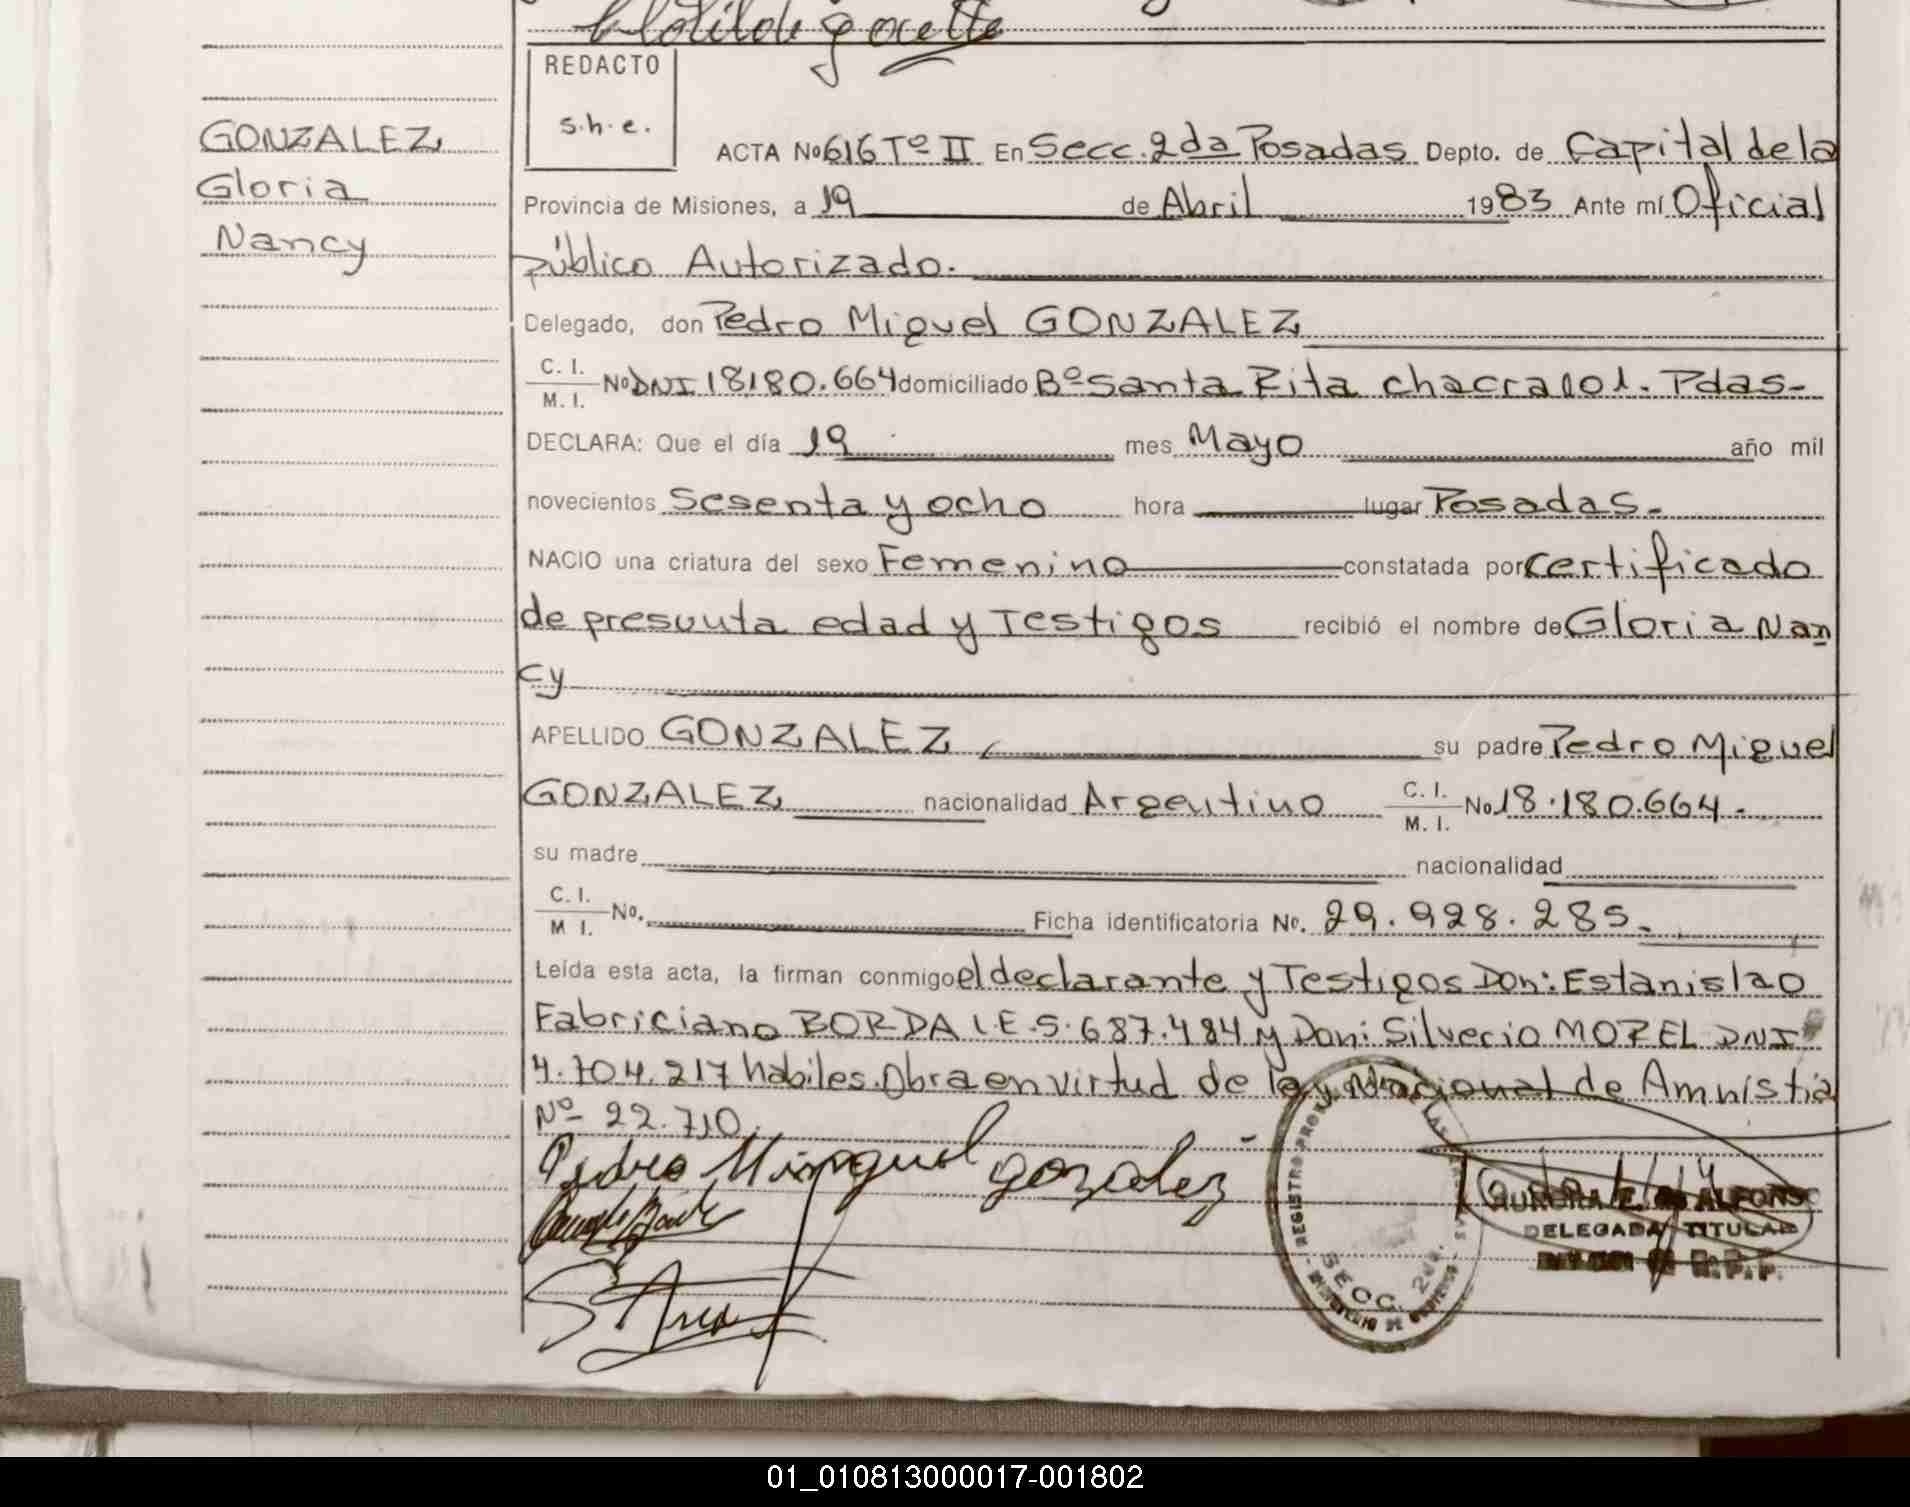 Clotilde
REDACTO
s.h.e.
GONZALEZ
Gloria
Nancy
ACTA No 616 Tº II En Secc. 2da Posadas Depto. de Capital de la
Provincia de Misiones, a 19 de Abril 1983 Ante mí Oficial
público Autorizado.
Delegado, don Pedro Miguel GONZALEZ
C. I.
M. I. No DNI 18180.664 domiciliado Bº Santa Rita chacra 101. Pdas-
DECLARA: Que el día 19 mes Mayo año mil
novecientos Sesenta y ocho hora lugar Posadas.
NACIO una criatura del sexo Femenino constatada por certificado
de presunta edad y Testigos recibió el nombre de Gloria Nan
cy
APELLIDO GONZALEZ su padre Pedro Miguel
GONZALEZ nacionalidad Argentino C. I. M. I. No 18.180.664.
su madre nacionalidad
C. I.
M I. No. Ficha identificatoria No. 29.928.285.
Leída esta acta, la firman conmigo el declarante y Testigos Don: Estanislao
Fabriciano BORDA L.E.5.687.484 y Don: Silverio MOREL DNI
4.704.217 habiles. Obra en virtud de ley Nacional de Amnistia
Nº 22.710.
Pedro Minguel gonzalez
DELEGADA TITULAR
R.P.P.
REGISTRO
SECC. 2da.
01_010813000017-001802